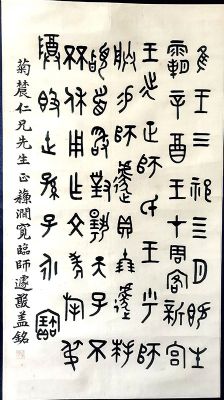 隹王三祀四月既生
霸辛酉王才周客新宮
王𢓊正師氏王乎師
朕易師遽貝十朋遽拜
䭫首敢對揚天子不
㔻休用乍文考旄弔
𣪘世孫子永寶
菊農仁兄先生正 蘓澗寬臨師遽敦蓋銘